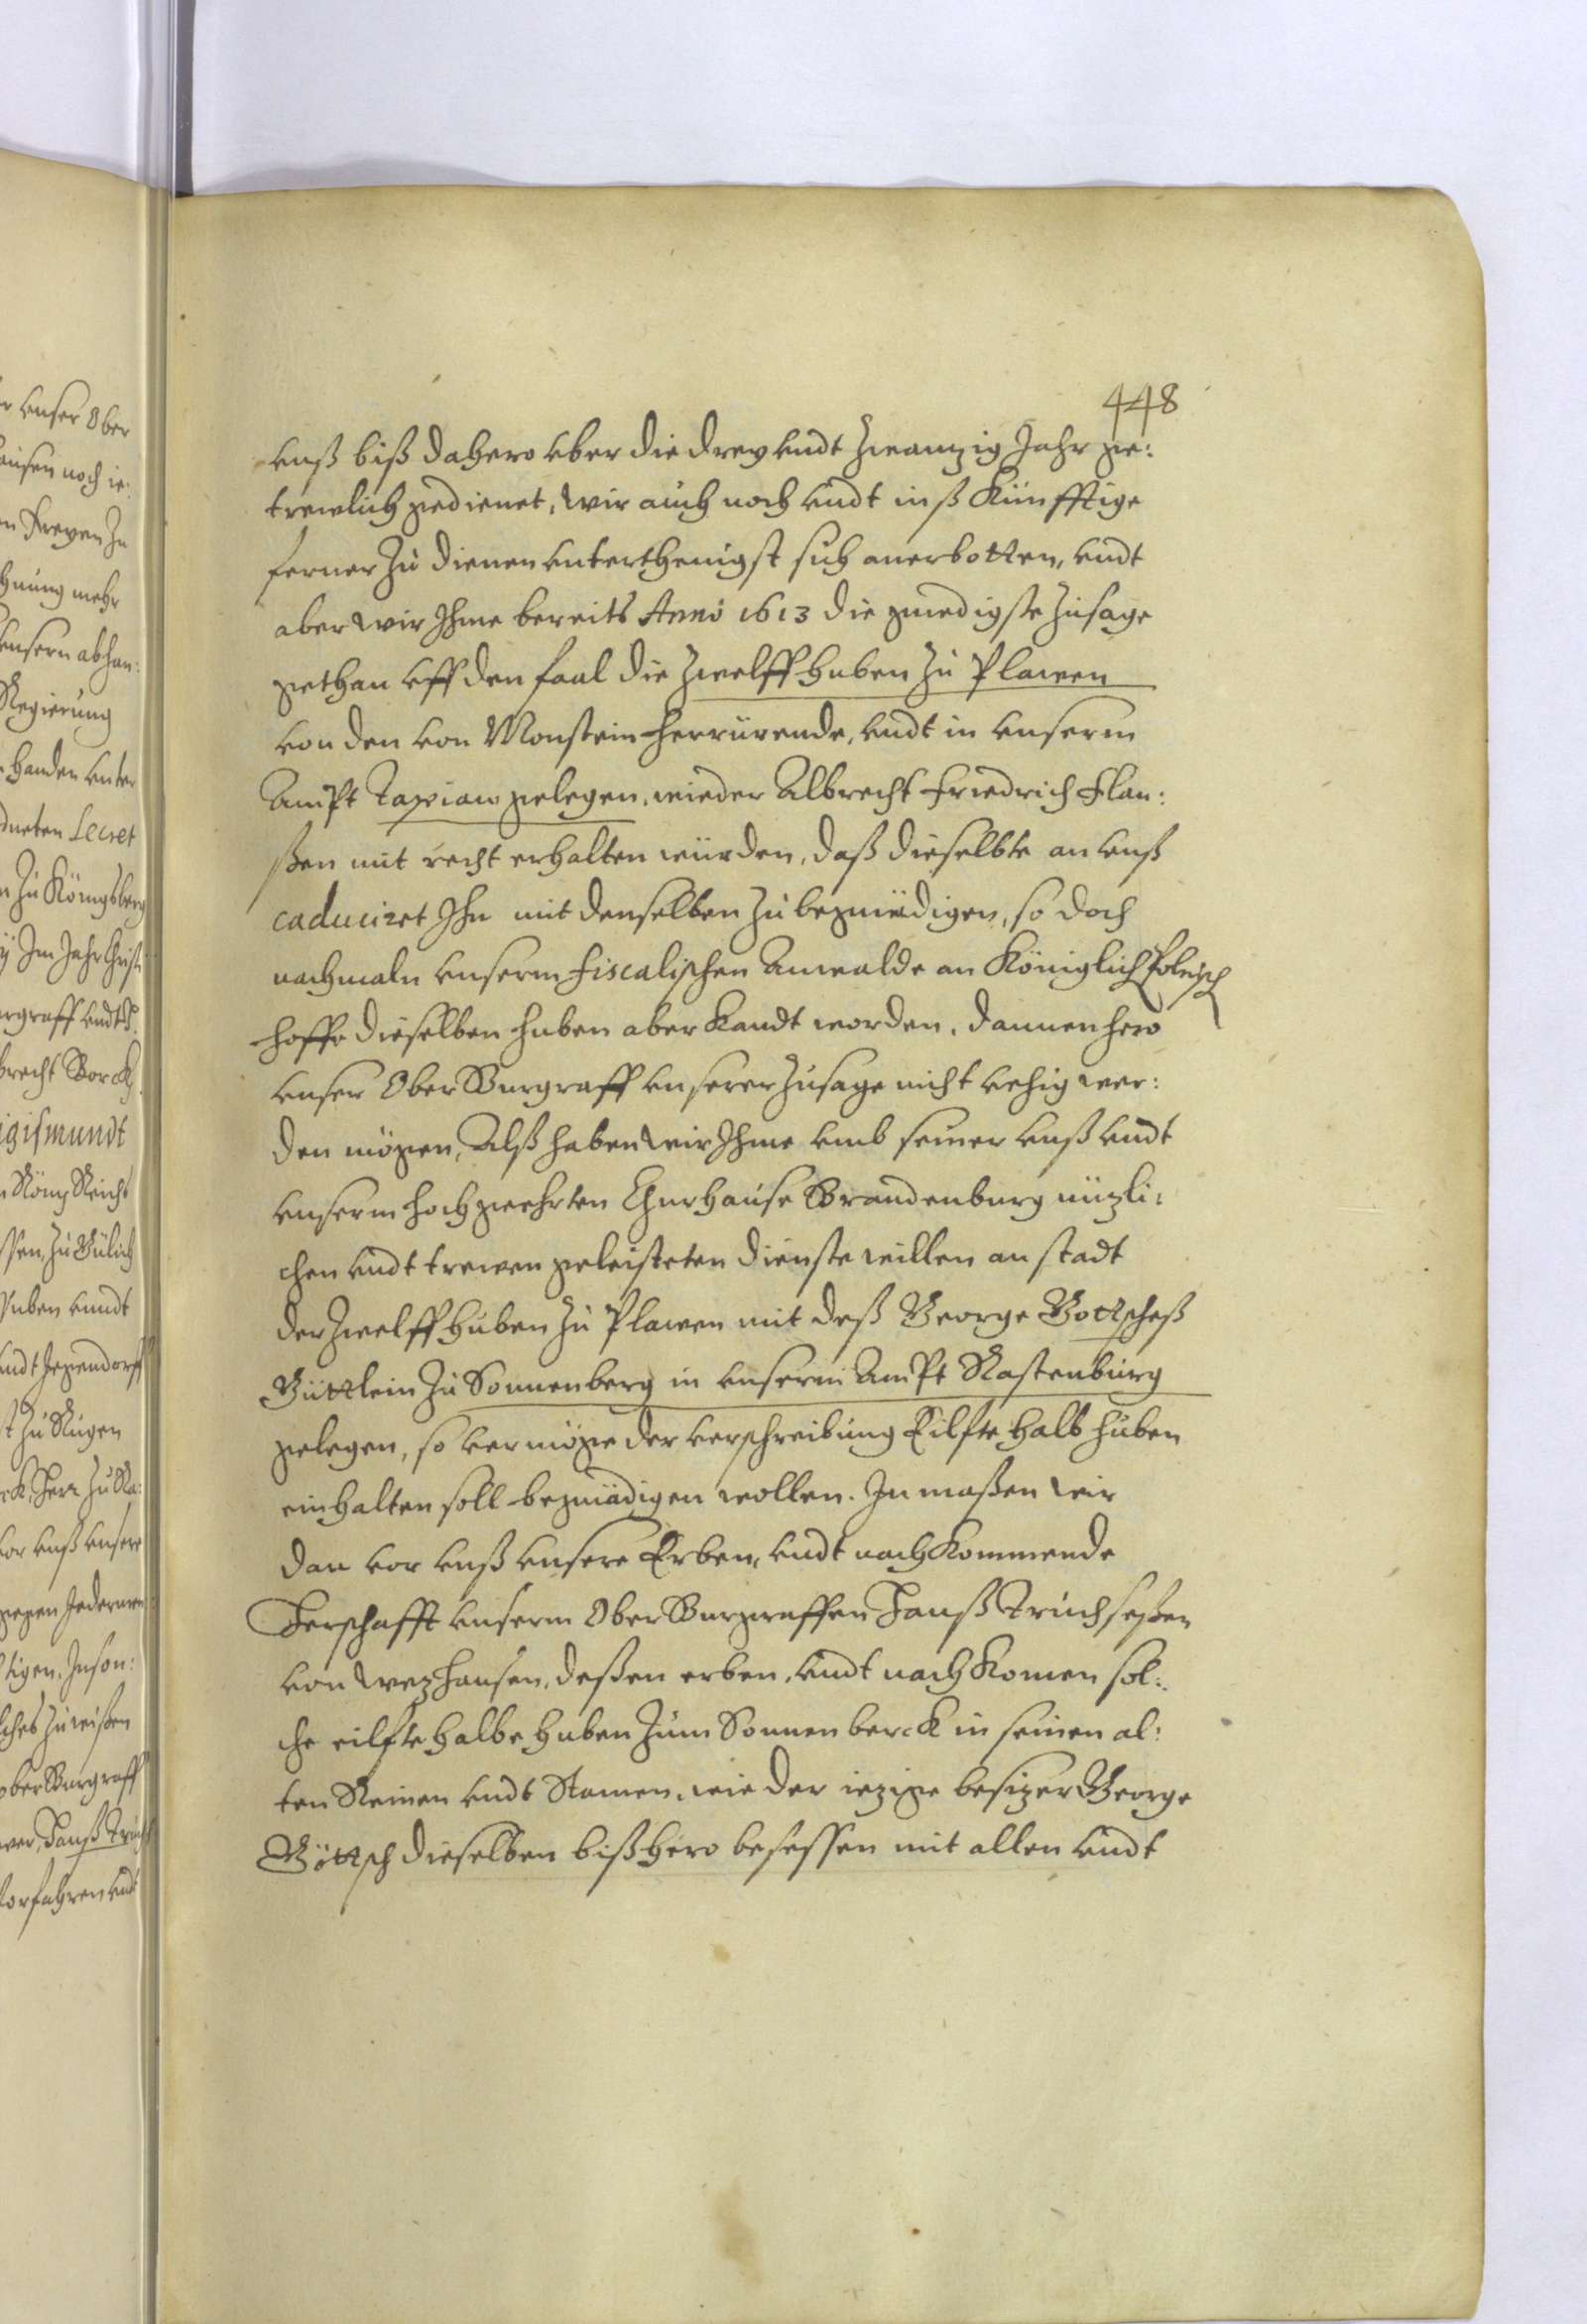 448
vnß biß dahero vber die drey vndt zwanzig Jahr ge:
trewlich gedienet, wir auch noch vndt inß Künfftige
ferner zu dienen vnterthenigst sich anerbotten, vndt
aber wir Ihme bereits Anno 1613 die gnedigste Zusage
gethan vff den faal die Zwelff Huben zu Plawen
von den von Monstein herrürende, vndt in vnserm
Ampt Tapiaw gelegen, wieder Albrecht Friedrich Flan:
ßen mit recht erhalten würden, daß dieselbte an vnß
caduciret Ihn mit denselben zu begnädigen, so doch
nachmaln vnserm fiscalischen Anwalde an Königlich Polnisch
Hoffe dieselben huben aberkandt worden, dannenhero
vnser Ober Burgraff vnserer Zusage nicht vehig wer:
den mögen, Alß haben wir Ihme vmb seiner vnß vndt
vnserm hochgeehrten Churhause Brandenburg nüzli:
chen vndt trewen geleisteten dienste willen an stadt
der Zwelff Huben zu Plawen mit deß George Gottscheß
Güttlein zu Sonnenberg in vnserm Ampt Rastenburg
gelegen, so vermöge der verschreibung Eilfte halb huben
einhalten soll begnädigen wollen. In maßen wir
dan vor vnß vnsere Erben, vndt nachkommende
Herschafft vnserm Ober Burggraffen Hanß Truchseßen
von Wezhausen, deßen erben, vndt nachkomen sol:
che eilfte halbe Huben zum Sonnenberck in seinen al:
ten Reinen vndt Stamen, wie der iezige besizer George
Göttsch dieselben biß hero besessen mit allen vndt
r vnser Ober
hausen noch ie:
Regierung
handen vnter
dneten Secret
zu Königsberg
Im Jahr Christi
brecht
igismundt
vor vnß vnsere
ober Burgraff
orfahren vndt